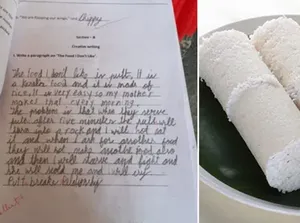 1. "We are flapping our wings" - said Chippy
Section - B
Creative writing
1. Write a paragraph on 'The Food I Don't Like'.
The food I don't like is putt. It is
a kerala food and it is made of
rice. It is very easy so my mother
makes that every morning.
The problem is that when they serve
putt after five minutes the putt will
turn into a rock and I will not eat
it and when I ask for another food
they will not make another food also
and then I will starve and fight and
she will scold me and I will cry
Putt breaks relationship